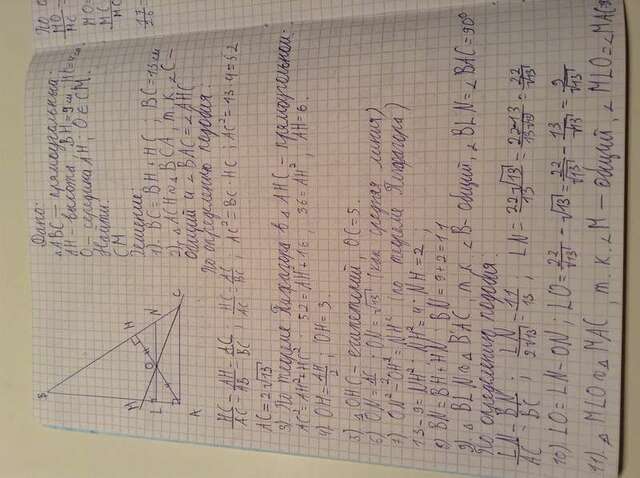 Дано:
△ABC — прямоугольный
AH — высота, BH = 9 см, HC = 4 см
O — середина AH, O ∈ CM.
Найти:
CM
Решение
1). BC = BH + HC, BC = 13 см
2) △ACH ∾ △BCA, т.к. ∠C —
общий и ∠BAC = ∠AHC
По определению подобия
HC/AC = AH/AB = AC/BC; HC/AC = AC/BC; AC² = BC · HC; AC² = 13 · 4 = 52
AC = 2√13
3) По теореме Пифагора в △AHC — прямоугольном:
AC² = AH² + HC², 52 = AH² + 16, 36 = AH², AH = 6.
4) OH = AH/2, OH = 3
5) △OHC — египетский, OC = 5.
6) ON = AC/2; ON = √13 (как средняя линия)
7) ON² - OH² = NH² (по теореме Пифагора)
13 - 9 = NH²; NH² = 4; NH = 2
8) BN = BH + HN, BN = 9 + 2 = 11
9) △BLN ∾ △BAC, т.к. ∠B - общий, ∠BLN = ∠BAC = 90°
По определению подобия
LN/AC = BN/BC; LN/2√13 = 11/13; LN = 22√13/13 = 22/√13
10) LO = LN - ON; LO = 22/√13 - √13 = 22/√13 - 13/√13 = 9/√13
11) △MLO ∾ △MAC, т.к. ∠M — общий, ∠MLO = ∠MAC
B
M
H
L
O
N
C
A
MO
MC